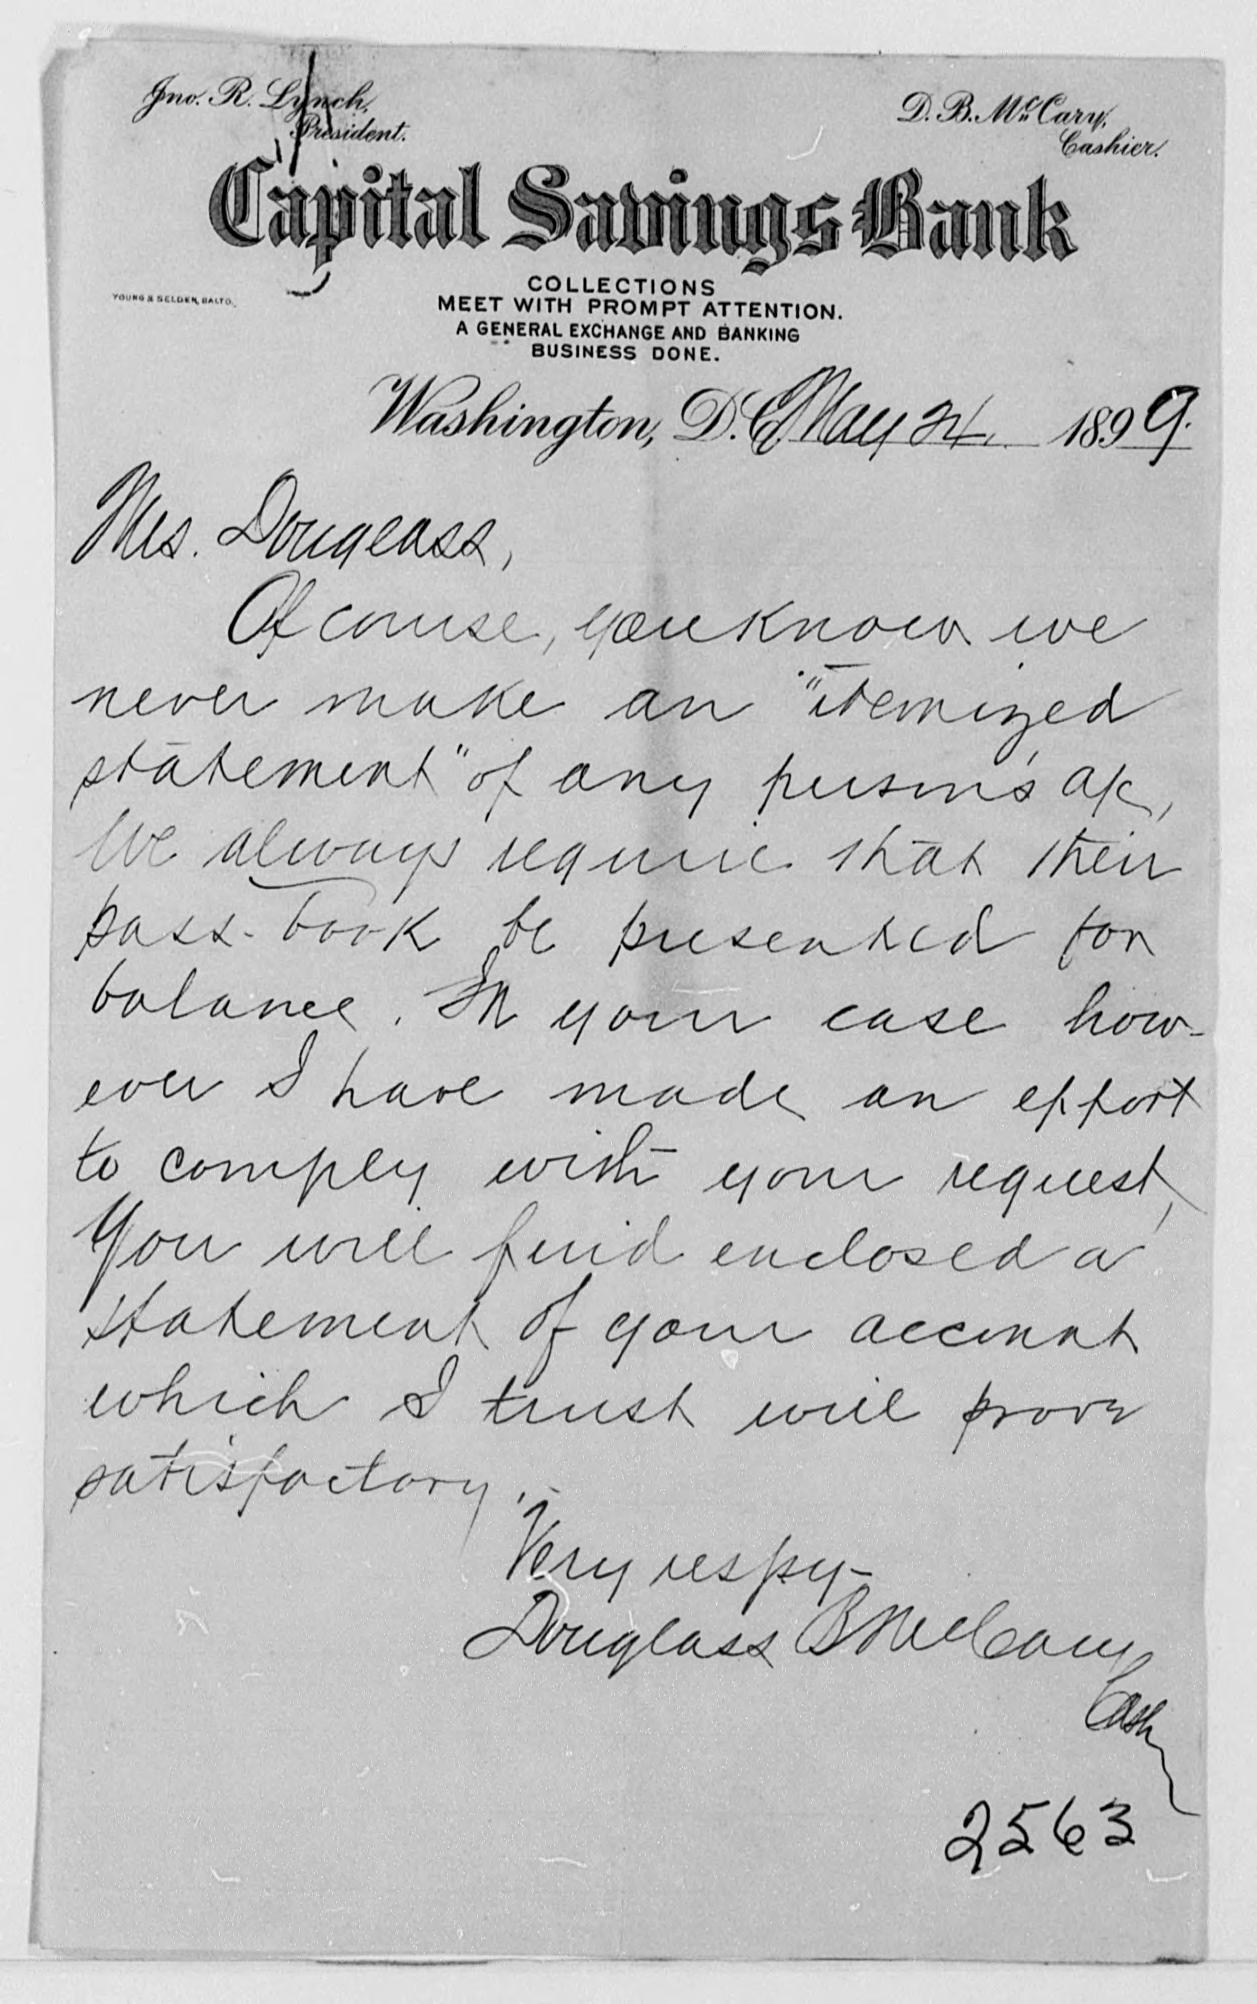 Jno. R. Lynch,
President.
D. B. McCary,
Cashier.
Capital Savings Bank
COLLECTIONS
MEET WITH PROMPT ATTENTION.
A GENERAL EXCHANGE AND BANKING
BUSINESS DONE.
YOUNG & SELDEN, BALTO.
Washington, D.C. May 24. 1899.
Mrs. Douglass,
Of course, you know we
never make an "itemized
statement" of any person's a/c,
We always require that their
pass-book be presented for
balance. In your case how-
ever I have made an effort
to comply with your request,
You will find enclosed a
statement of your account
which I trust will prove
satisfactory.
Very respy-
Douglass B McCary
Cash
2563